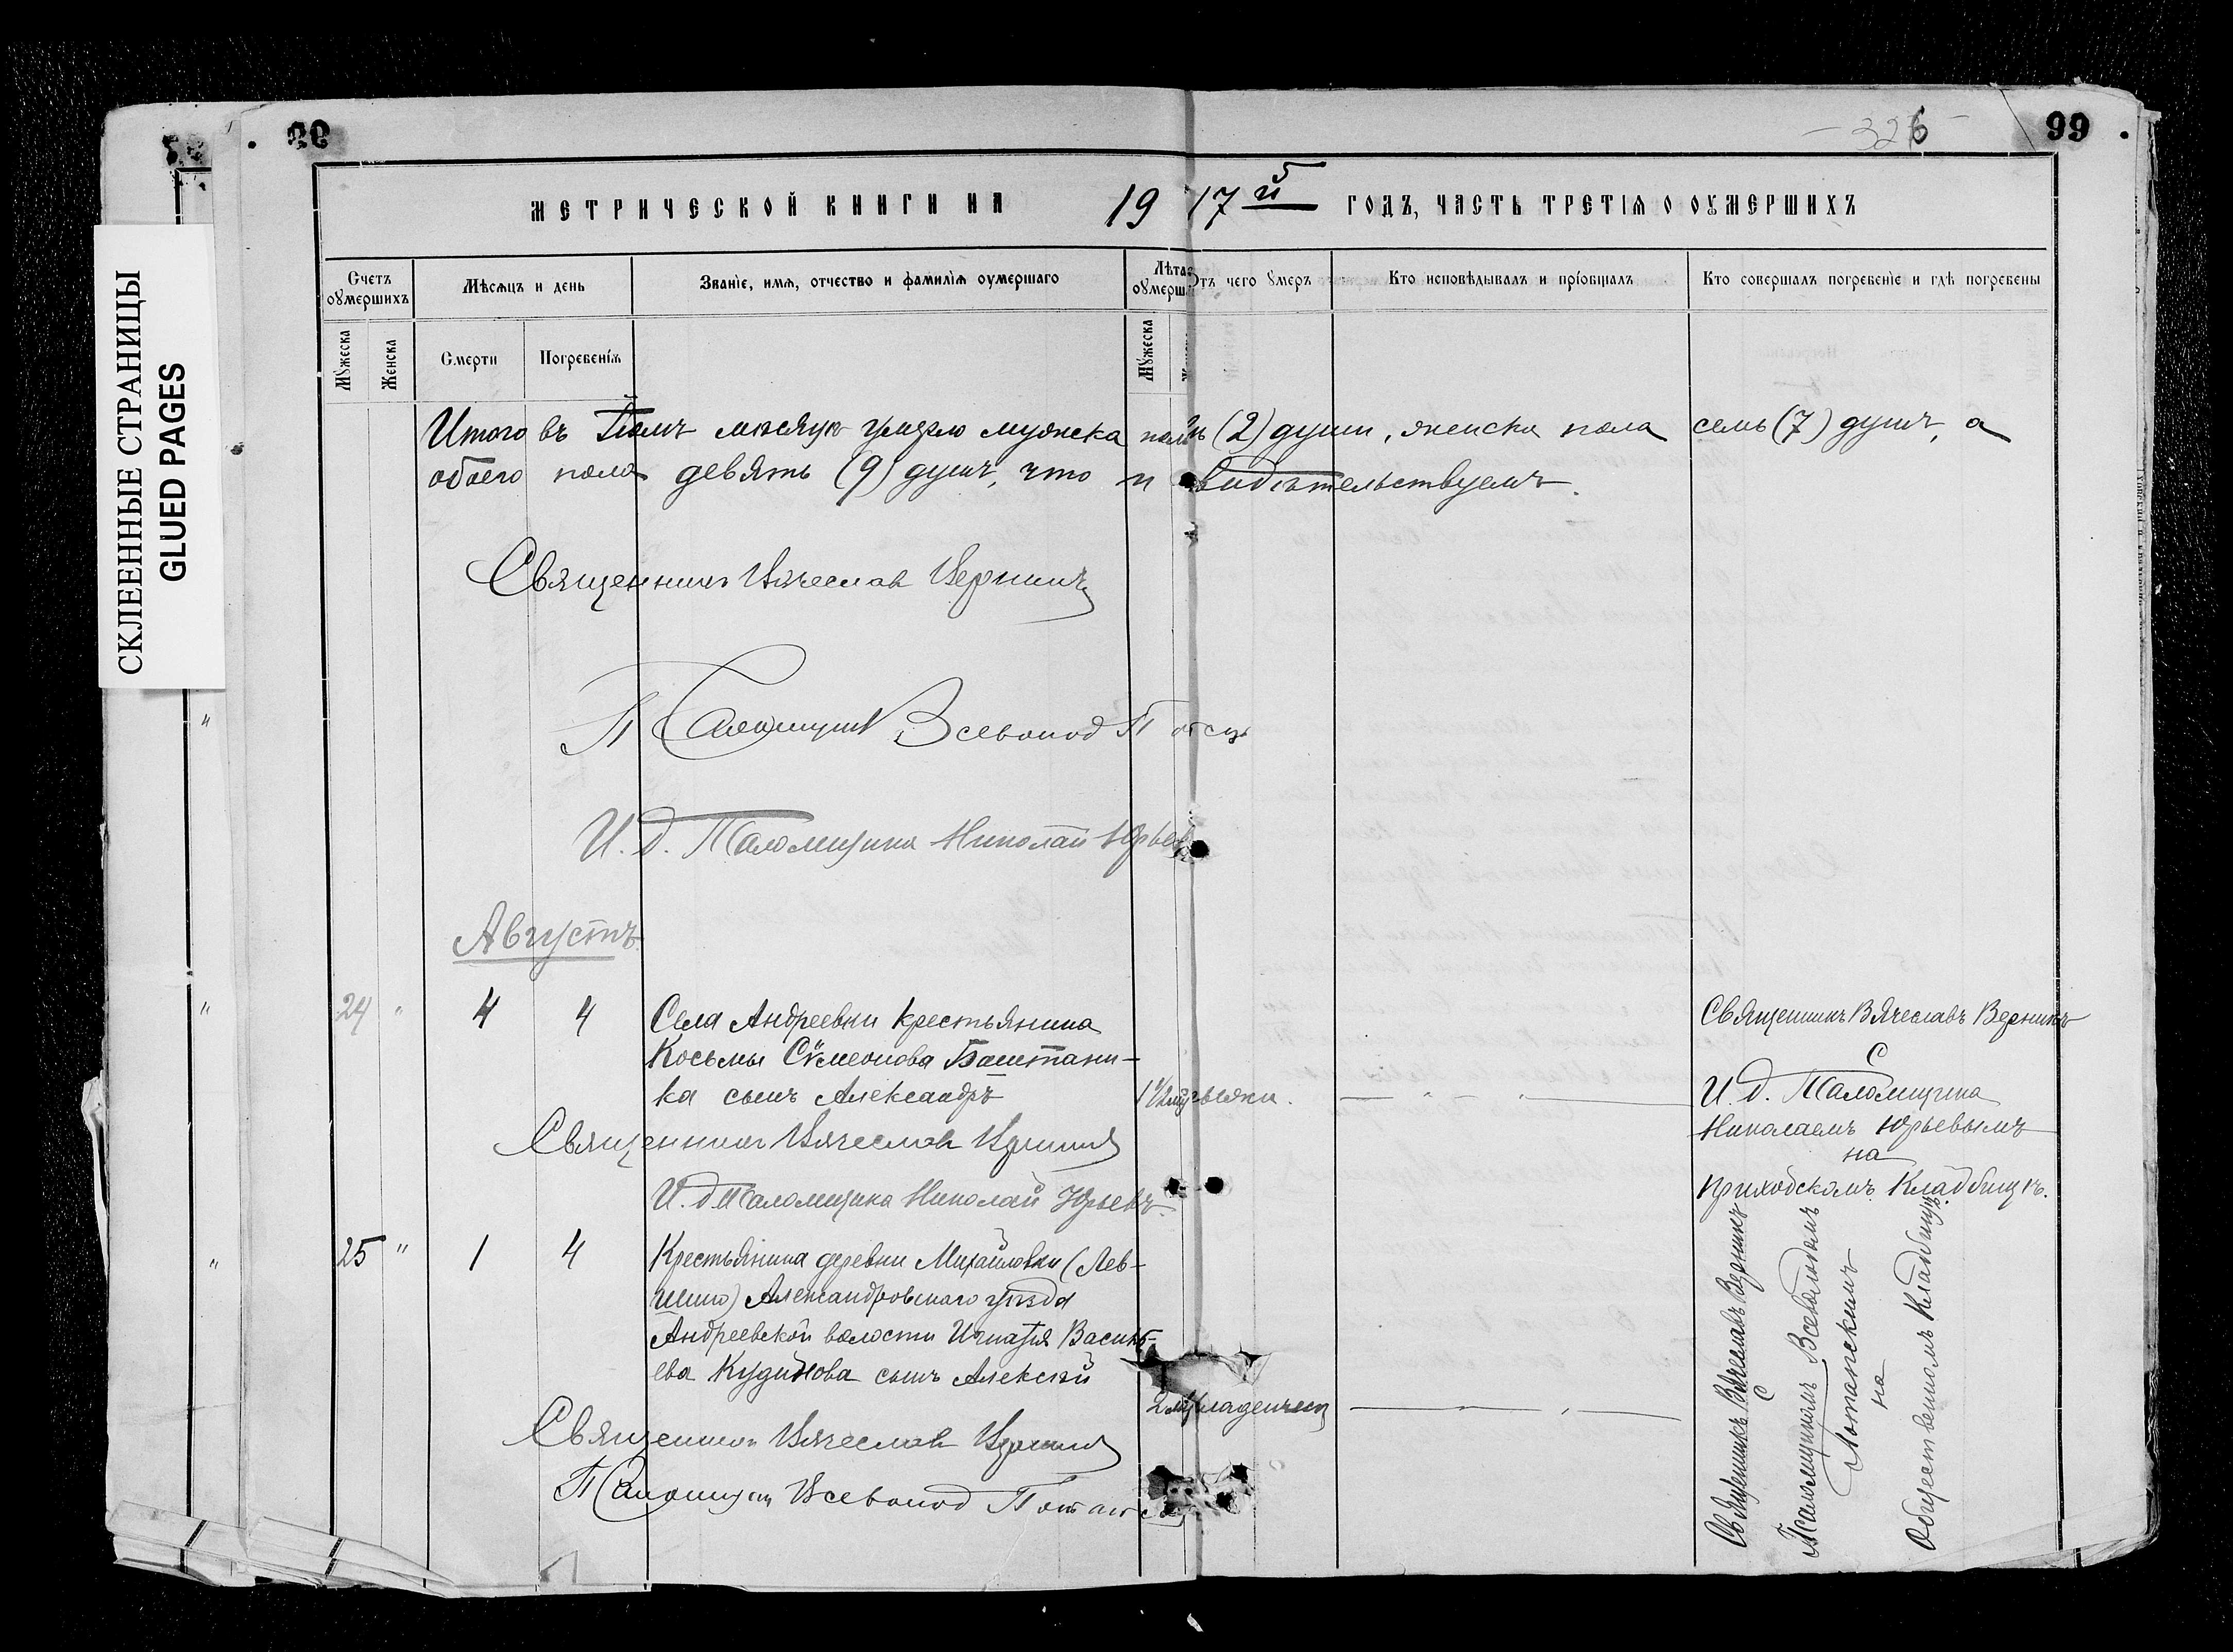 СКЛЕЕННЫЕ СТРАНИЦЫ
GLUED PAGES
326
99
МЕТРИЧЕСКОЙ КНИГИ НА 1917й ГОДЪ, ЧАСТЬ ТРЕТІЯ О ОУМЕРШИХЪ
Счетъ оумершихъ
Мѣсяцъ и день
Званіе, имя, отчество и фамилія оумершаго
Лѣта оумерш
Отъ чего умеръ
Кто исповѣдывалъ и пріобщалъ
Кто совершалъ погребеніе и гдѣ погребены
Мужеска
Женска
Смерти
Погребенія
Мужеска
Итого въ Іюлѣ мѣсяцѣ умерло мужеска пола (2) души, женска пола семь (7) душъ, а
обоего пола девять (9) душъ, что и свидѣтельствуемъ.
Священникъ Вячеслав Верникъ
Псаломщик Всеволод
И. д. Псаломщика Николай Юрьев
Августъ
24 " 4 4 Села Андреевки крестьянина
Косьмы Сѵмеонова Баштанни-
ка сынъ Александръ
Священникъ Вячеслав Верникъ
И. д. Псаломщика Николай Юрьевъ.
Священникъ Вячеславъ Верникъ
С
И. д. Псаломщика
Николаемъ Юрьевымъ
на
приходскомъ кладбищѣ.
25 " 1 4 Крестьянина деревни Михайловки (Лев-
шино) Александровскаго уѣзда
Андреевской волости Игнатія Василь-
ева Кудинова сынъ Алексѣй
Священник Вячеслав Верникъ
Псаломщик Всеволод
Священникъ Вячеславъ Верникъ
С
Псаломщикомъ Всеволодомъ
на
Общественномъ кладбищѣ.